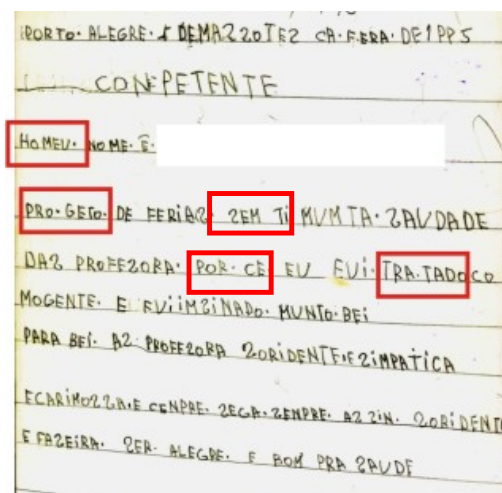 PORTO. ALEGRE. 1 DEMAZZOTEZ CA. FERA. DE1PP5
CONPETENTE
HOMEU. NOME. E.
PRO. GETO. DE FERIAZ. ZEM Ti MUMTA. ZAUDADE
DAZ PROFEZORA. POR. CE EU FUi. TRA. TADOCO
MOGENTE. E FUiiMZiNADO. MUNTO. BEI
PARA BEI. AZ PROFEZORA ZORIDENTE. E ZIMPATICA
ECARIMOZZA. E CENPRE. ZEGA. ZENPRE. AZZIN. ZORIDENTE
E FAZEIRA. ZER. ALEGRE. E BOM PRA ZAUDE